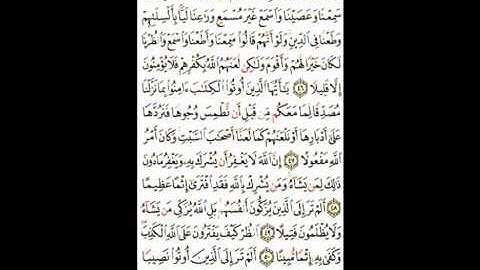 سَمِعْنَا وَعَصَيْنَا وَاسْمَعْ غَيْرَ مُسْمَعٍ وَرَاعِنَا لَيًّا بِأَلْسِنَتِهِمْ
وَطَعْنًا فِي الدِّينِ وَلَوْ أَنَّهُمْ قَالُوا سَمِعْنَا وَأَطَعْنَا وَاسْمَعْ وَانْظُرْنَا
لَكَانَ خَيْرًا لَهُمْ وَأَقْوَمَ وَلَكِنْ لَعَنَهُمُ اللَّهُ بِكُفْرِهِمْ فَلَا يُؤْمِنُونَ
إِلَّا قَلِيلًا ٤٦ يَا أَيُّهَا الَّذِينَ أُوتُوا الْكِتَابَ آمِنُوا بِمَا نَزَّلْنَا
مُصَدِّقًا لِمَا مَعَكُمْ مِنْ قَبْلِ أَنْ نَطْمِسَ وُجُوهًا فَنَرُدَّهَا
عَلَى أَدْبَارِهَا أَوْ نَلْعَنَهُمْ كَمَا لَعَنَّا أَصْحَابَ السَّبْتِ وَكَانَ أَمْرُ
اللَّهِ مَفْعُولًا ٤٧ إِنَّ اللَّهَ لَا يَغْفِرُ أَنْ يُشْرَكَ بِهِ وَيَغْفِرُ مَا دُونَ
ذَلِكَ لِمَنْ يَشَاءُ وَمَنْ يُشْرِكْ بِاللَّهِ فَقَدِ افْتَرَى إِثْمًا عَظِيمًا
٤٨ أَلَمْ تَرَ إِلَى الَّذِينَ يُزَكُّونَ أَنْفُسَهُمْ بَلِ اللَّهُ يُزَكِّي مَنْ يَشَاءُ
وَلَا يُظْلَمُونَ فَتِيلًا ٤٩ انْظُرْ كَيْفَ يَفْتَرُونَ عَلَى اللَّهِ الْكَذِبَ
وَكَفَى بِهِ إِثْمًا مُبِينًا ٥٠ أَلَمْ تَرَ إِلَى الَّذِينَ أُوتُوا نَصِيبًا